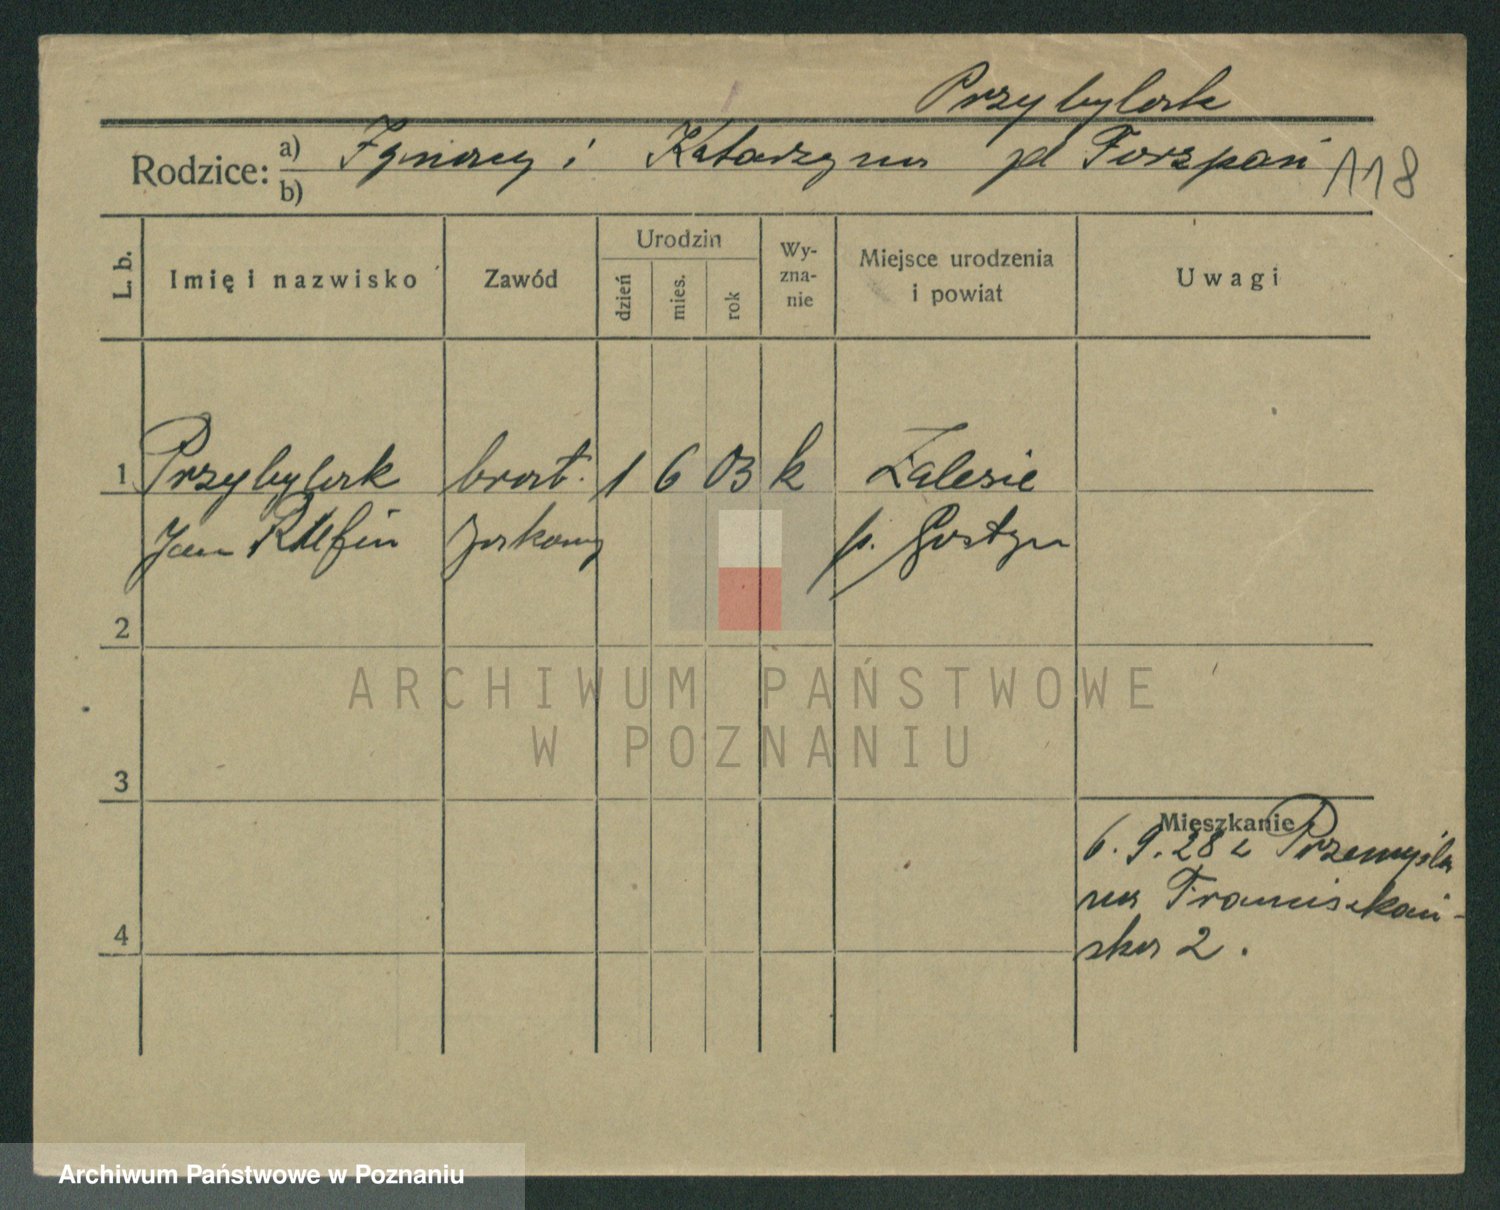 Przybylak
Rodzice: a) Ignacy i Katarzyna
b)
118
L. b.
Imię i nazwisko
Zawód
Urodzin
dzień
mies.
rok
Wy-
zna-
nie
Miejsce urodzenia
i powiat
Uwagi
1 Przybylak brat. 1 6 03 k Zalesie
Jan Rufin zakonny p. Gostyń
2
ARCHIWUM PAŃSTWOWE
W POZNANIU
3
Mieszkanie
6. 9. 28 z Przemyśla
na Franciszkań-
ska 2.
4
Archiwum Państwowe w Poznaniu